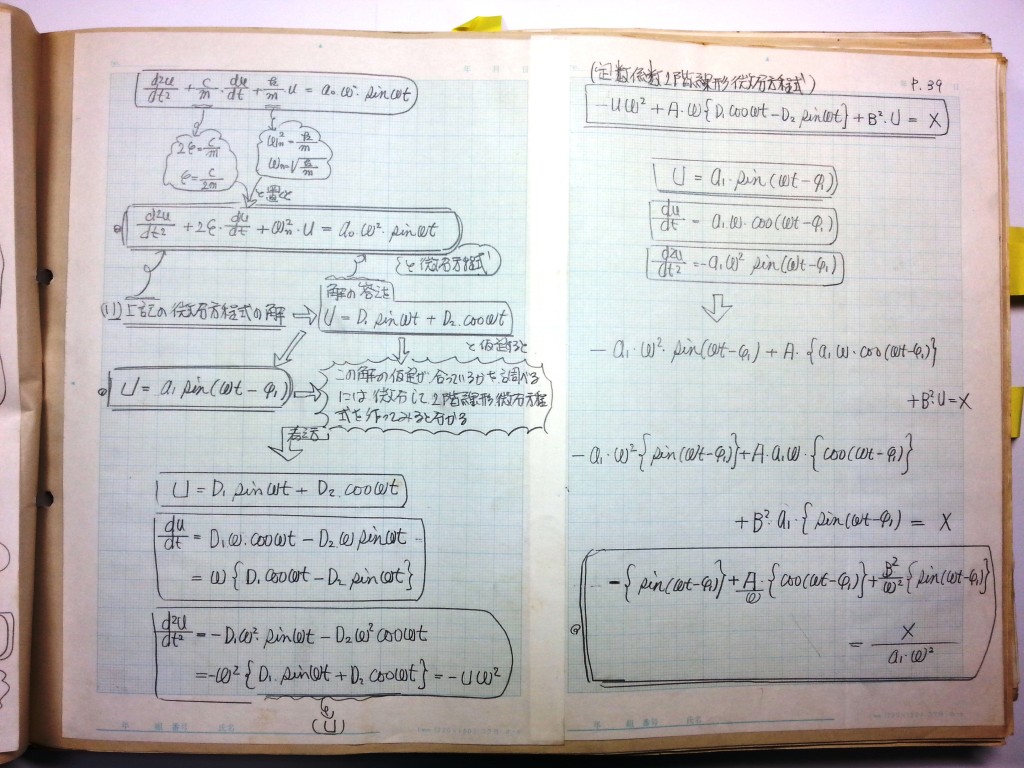 d²u/dt² + c/m · du/dt + k/m · u = a₀ω² · sinωt
2ε = c/m
ε = c/2m
ωn² = k/m
ωn = √k/m
と置くと
d²u/dt² + 2ε · du/dt + ωn² · u = a₀ · ω² · sinωt
と微分方程式
(1) 上記の微分方程式の解
解の答を
U = D₁ sinωt + D₂ · cosωt
と仮定すると
U = a₁ sin(ωt − φ₁)
この解の仮定が合っているかを調べる
には微分して2階線形微分方程
式を作ってみると分かる
U = D₁ · sinωt + D₂ · cosωt
du/dt = D₁ω · cosωt − D₂ω sinωt
= ω{D₁ cosωt − D₂ sinωt}
d²u/dt² = −D₁ω² · sinωt − D₂ω² cosωt
= −ω²{D₁ · sinωt + D₂ cosωt} = −Uω²
(U)
年 組 番号 氏名
(定数係数2階線形微分方程式)
P.39
−Uω² + A·ω{D₁ cosωt − D₂ sinωt} + B²·U = X
U = a₁ · sin(ωt − φ₁)
du/dt = a₁ω · cos(ωt − φ₁)
d²u/dt² = −a₁ω² sin(ωt − φ₁)
− a₁ · ω² · sin(ωt − φ₁) + A · {a₁ω · cos(ωt − φ₁)}
+ B²U = X
− a₁ · ω² {sin(ωt − φ₁)} + A · a₁ω · {cos(ωt − φ₁)}
+ B² · a₁ · {sin(ωt − φ₁) = X
− {sin(ωt − φ₁)} + A/ω · {cos(ωt − φ₁)} + B²/ω² {sin(ωt − φ₁)}
= X / a₁ · ω²
年 組 番号 氏名